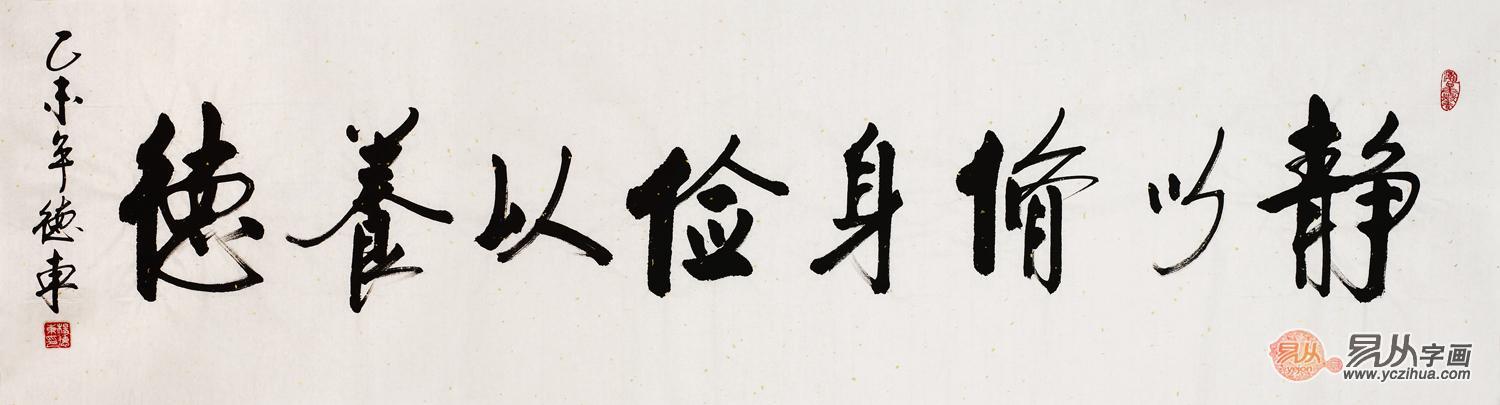 静以脩身俭以養德
乙未年德東
易从
yejon
易从字画
www.yczihua.com